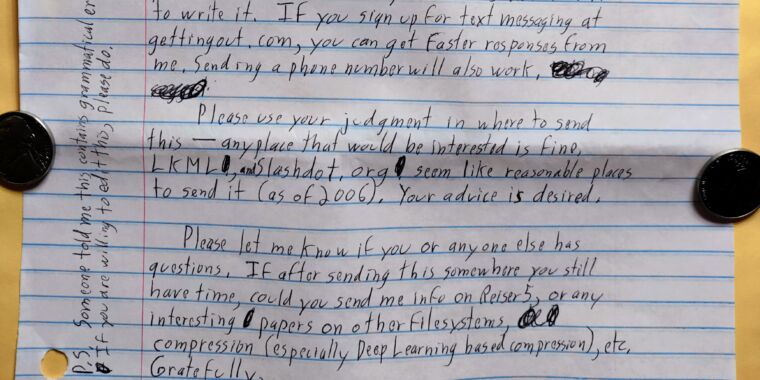 to write it. If you sign up for text messaging at
gettingout.com, you can get faster responses from
me. Sending a phone number will also work.
Please use your judgment in where to send
this — anyplace that would be interested is fine.
LKML, and Slashdot.org seem like reasonable places
to send it (as of 2006). Your advice is desired.
Please let me know if you or anyone else has
questions. If after sending this somewhere you still
have time, could you send me info on Reiser5, or any
interesting papers on other filesystems,
compression (especially Deep Learning based compression), etc.
Gratefully,
P.S. Someone told me this contains grammatical er
If you are willing to edit this, please do.